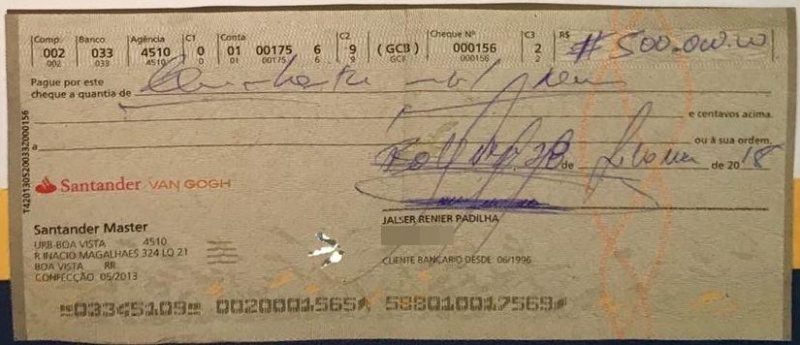 Comp. Banco Agência C1 Conta C2 Cheque Nº C3 R$
002 033 4510 0 01 00175 6 9 (GCB) 000156 2 # 500.000.00
002 033 4510 0 01 00175 6 9 GCB 000156 2
Pague por este
cheque a quantia de
e centavos acima.
a ou à sua ordem.
de de 2018
Santander VAN GOGH
Santander Master
URB-BOA VISTA 4510
R INACIO MAGALHAES 324 LO 21
BOA VISTA RR
CONFECÇÃO: 05/2013
JALSER RENIER PADILHA
CLIENTE BANCARIO DESDE 06/1996